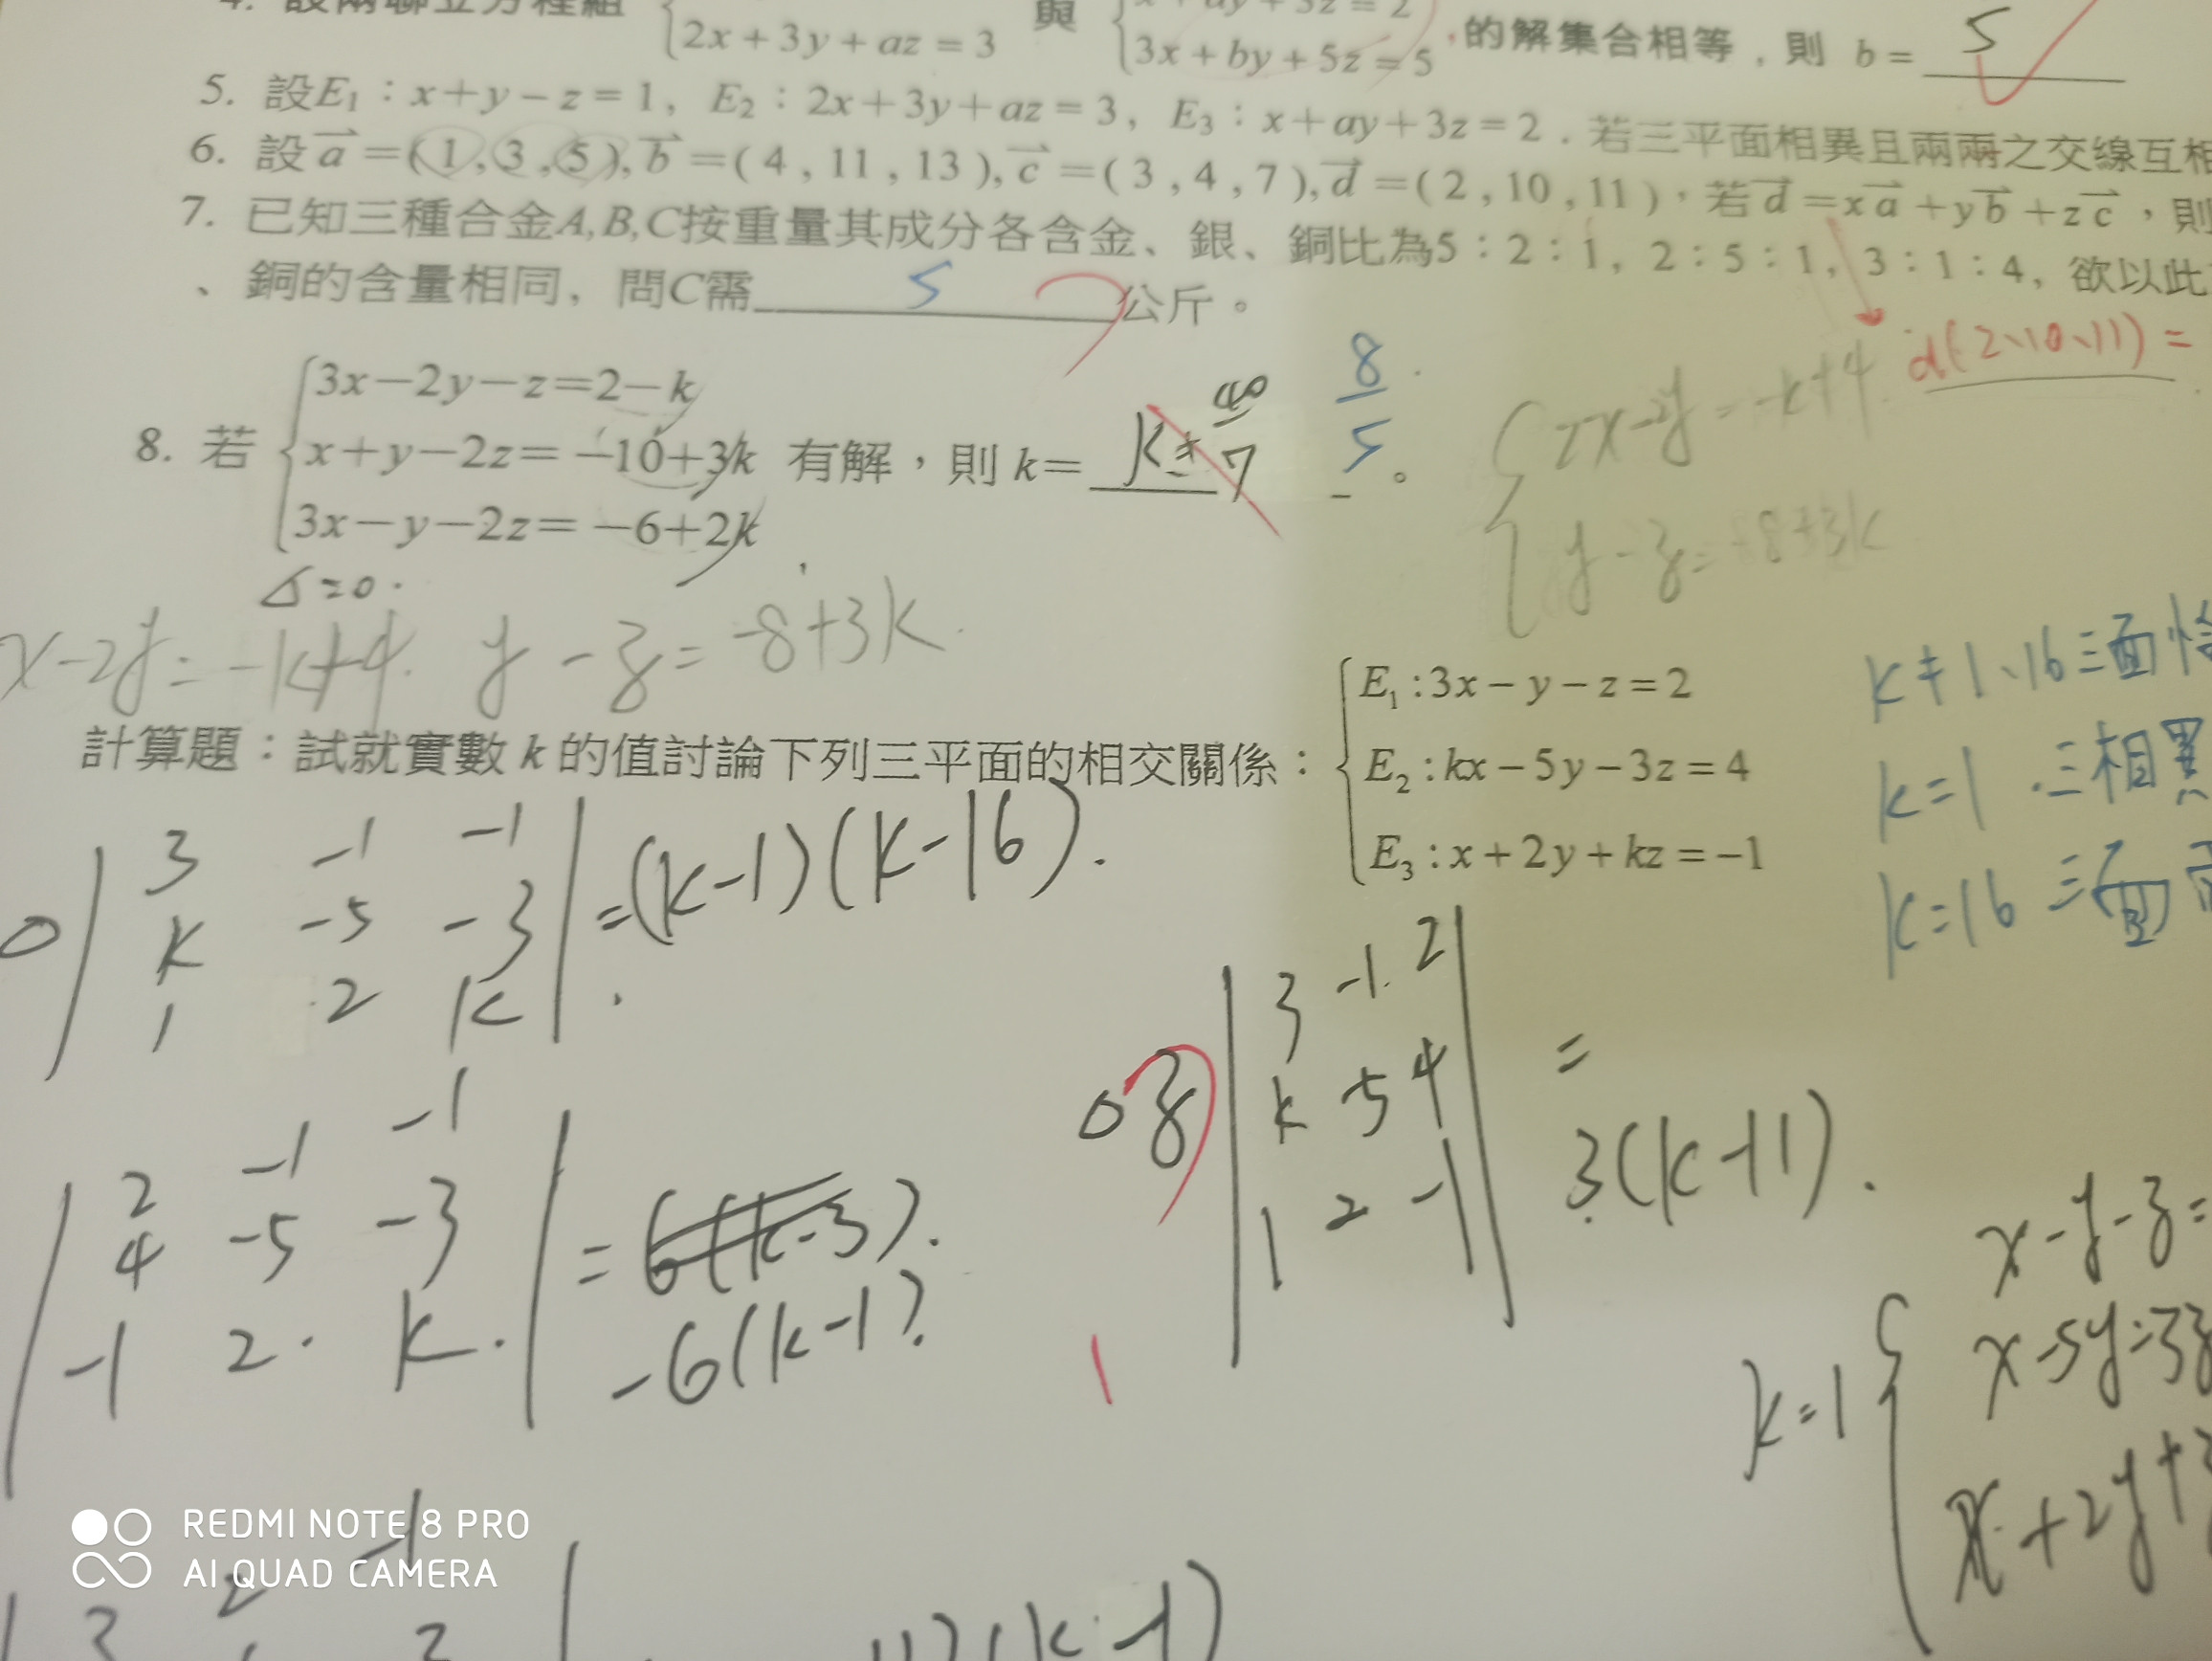 4. 設兩聯立方程組 { 2x+3y+az=3 與 { x+ay+3z=2 3x+by+5z=5 的解集合相等，則 b= 5
5. 設E₁：x+y−z=1, E₂：2x+3y+az=3, E₃：x+ay+3z=2．若三平面相異且兩兩之交線互相
6. 設a⃗=(1,3,5),b⃗=(4,11,13),c⃗=(3,4,7),d⃗=(2,10,11)，若d⃗=xa⃗+yb⃗+zc⃗，則
7. 已知三種合金A,B,C按重量其成分各含金、銀、銅比為5：2：1, 2：5：1, 3：1：4, 欲以此
、銅的含量相同, 問C需 5 公斤。
d(2、10、11)=
3x−2y−z=2−k
8. 若 x+y−2z=−10+3k 有解，則 k= k= 40/7 8/5 。
3x−y−2z=−6+2k
2x-2y=-k+4
y-z=-8+3k
Δ=0.
x-2y=-k+4. y-z=-8+3k.
計算題：試就實數 k 的值討論下列三平面的相交關係：
E₁:3x−y−z=2
E₂:kx−5y−3z=4
E₃:x+2y+kz=−1
k≠1、16三面恰
k=1.三相異
k=16 三面
3 -1 -1
k -5 -3 =(k-1)(k-16).
1 2 k
3 -1 2
k -5 4 =
1 2 -1
3(k-11).
2 -1 -1
4 -5 -3 = 6(k-3).
-1 2 k
-6(k-1)
k=1
x-y-z=
x-5y-3z
x+2y+
REDMI NOTE 8 PRO
AI QUAD CAMERA